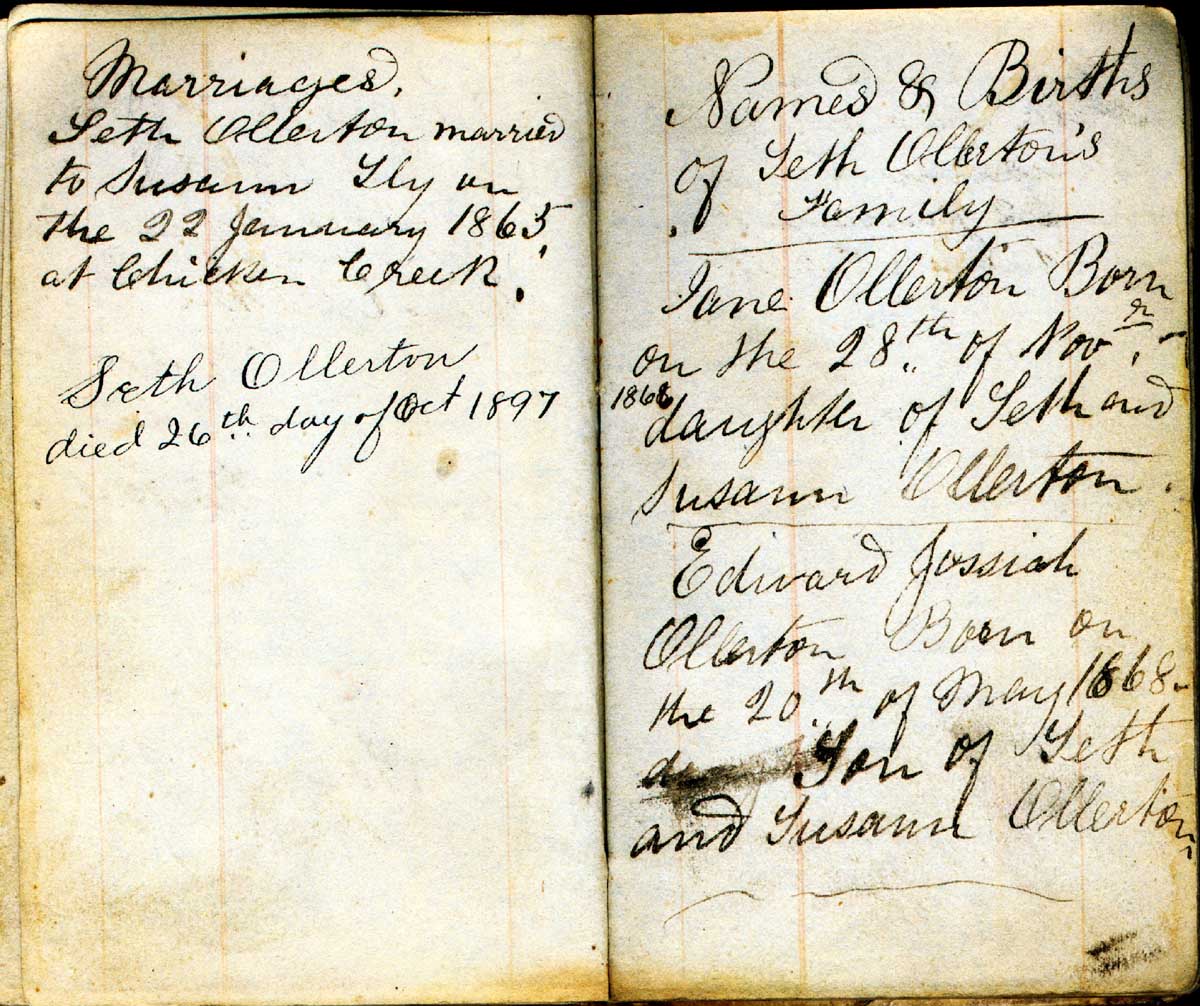 Marriages.
Seth Ollerton married
to Susann Sly on
the 22 January 1865,
at Chicken Creek.
Seth Ollerton
died 26th day of Oct 1897
Names & Births
of Seth Ollerton's
Family
Jane Ollerton Born
on the 28th of Novr.
1868
daughter of Seth and
Susann Ollerton.
Edward Jossiah
Ollerton Born on
the 20th of May 1868
Son of Seth
and Susann Ollerton